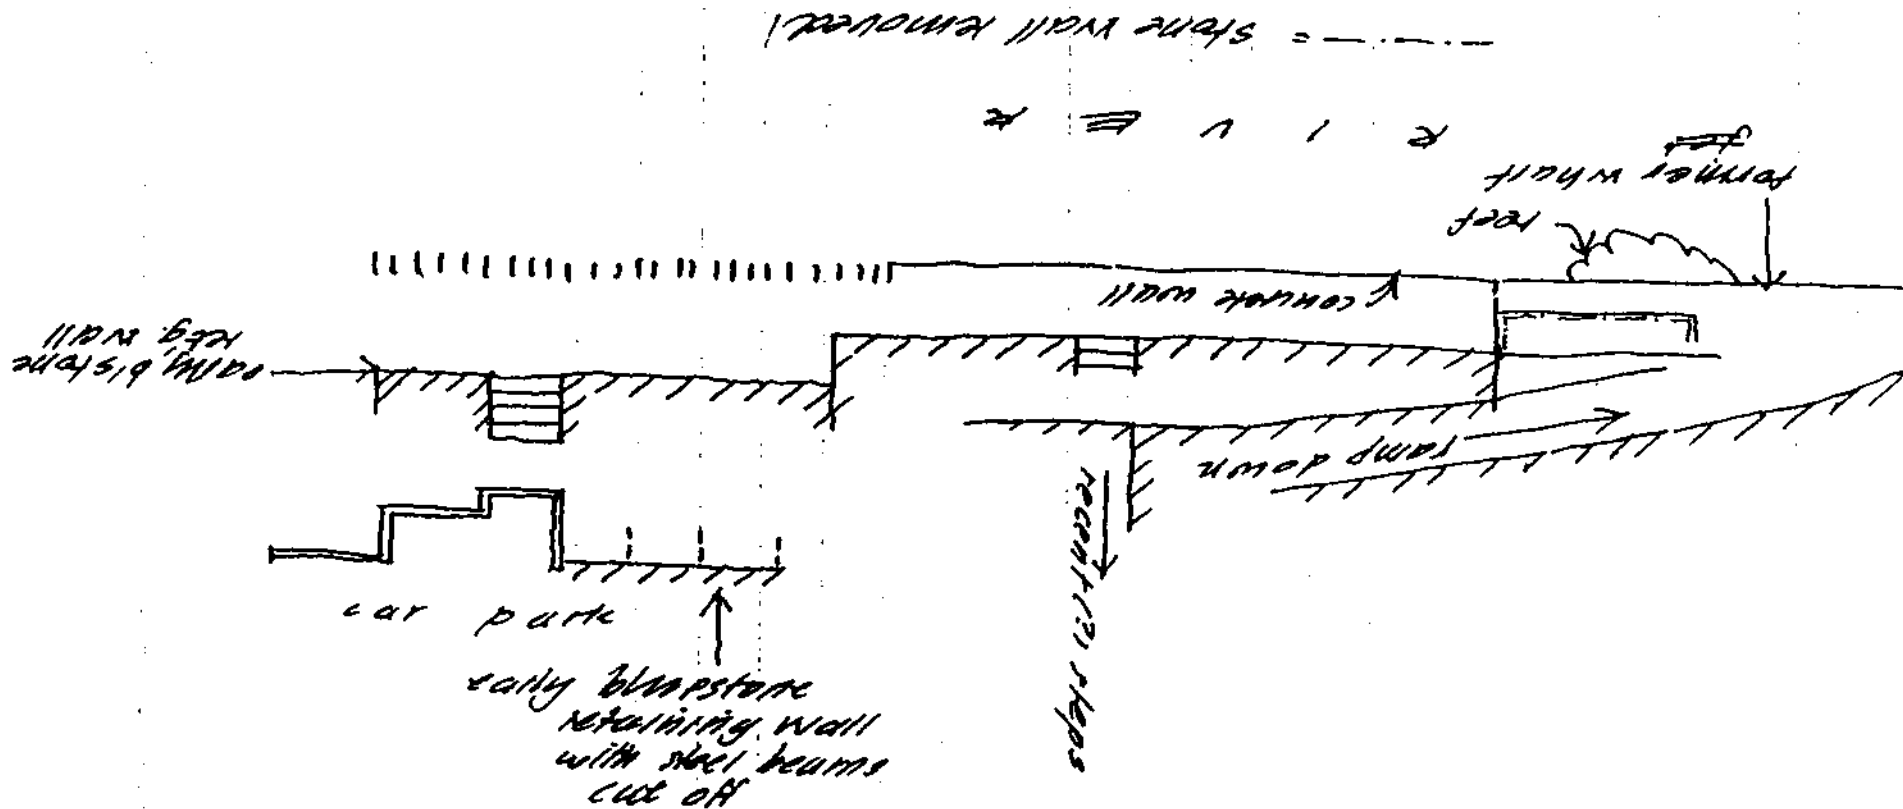 -·-·-·- = stone wall removed
R I V E R
former wharf
reef
concrete wall
early b/stone
retg. wall
ramp down
recent(?) steps
car park
early bluestone
retaining wall
with steel beams
cut off